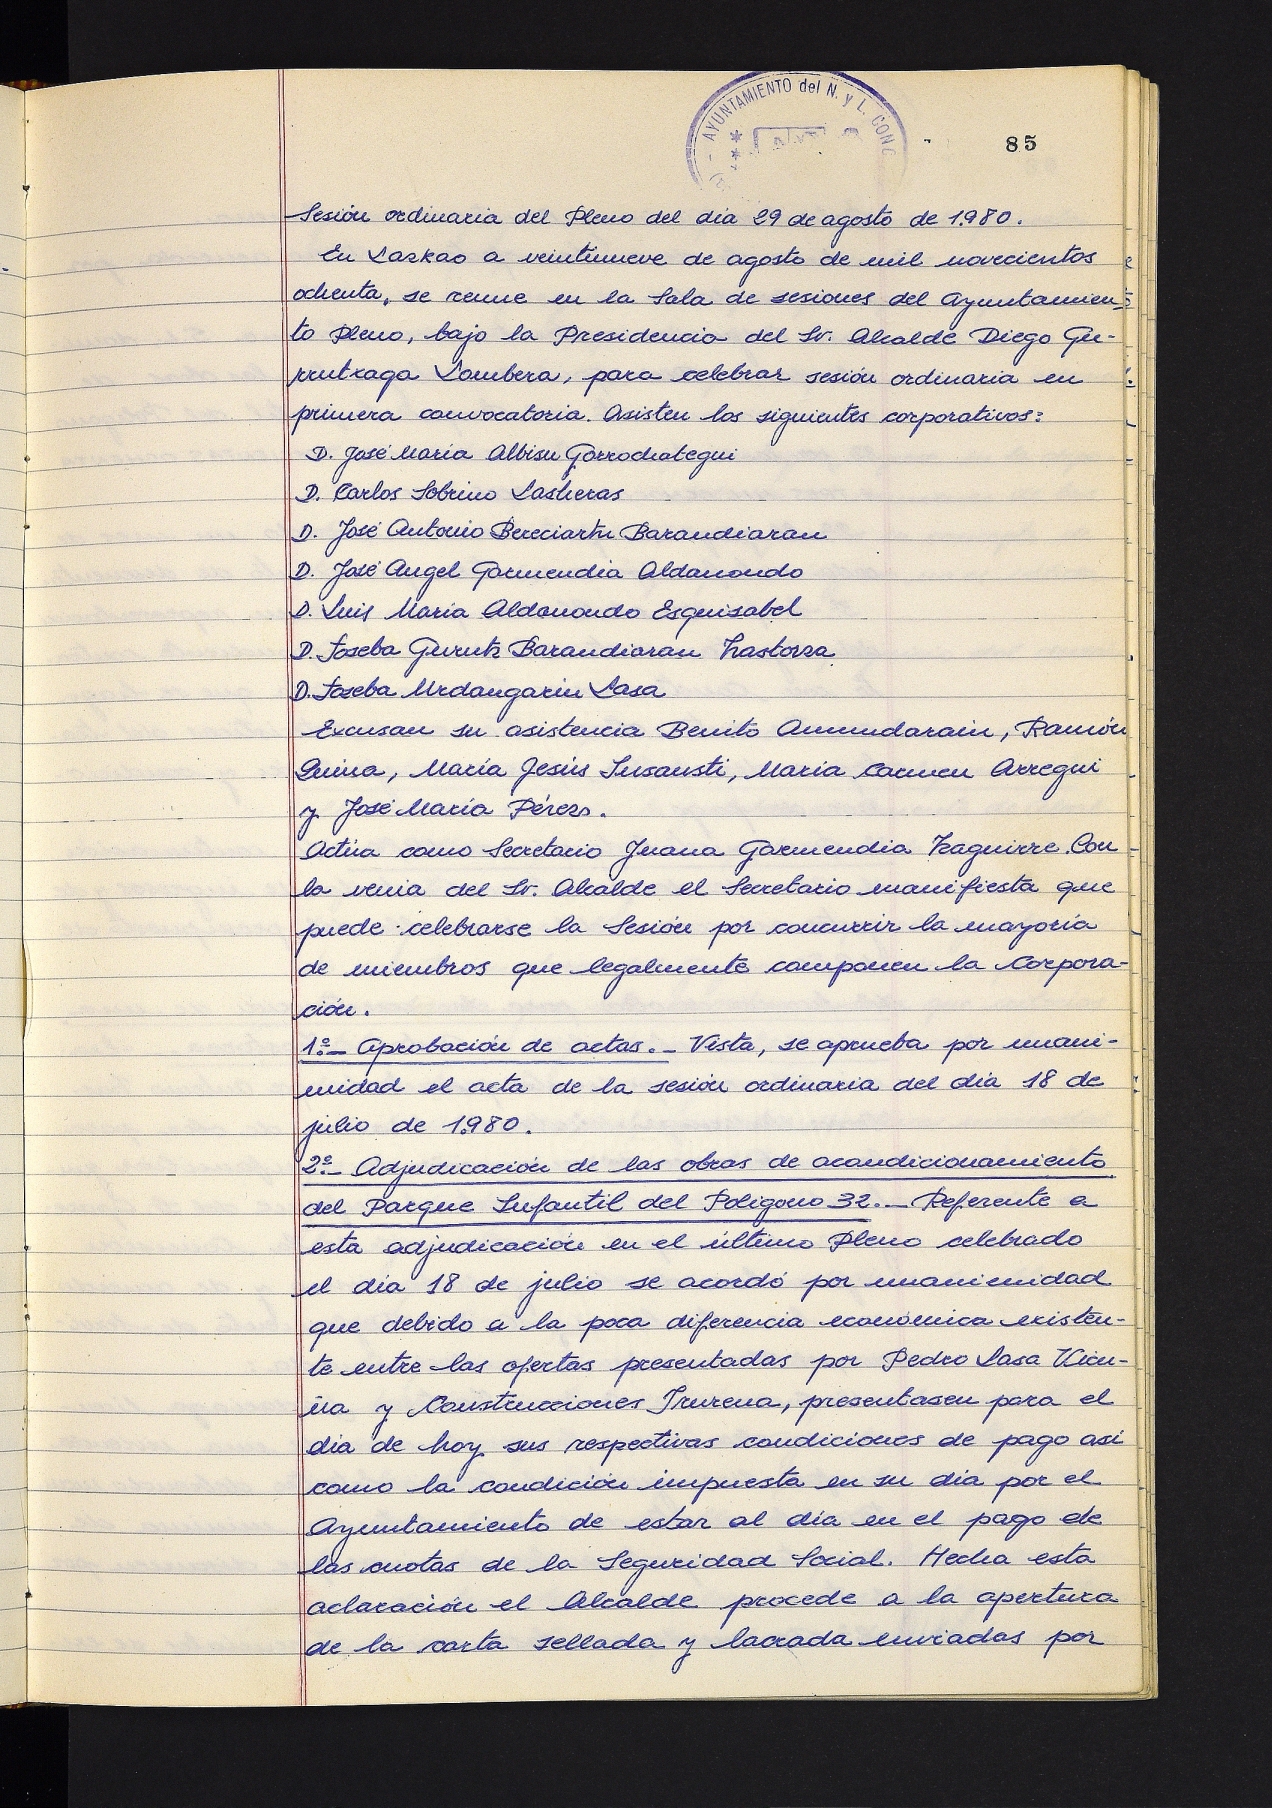 AYUNTAMIENTO del N. y L. CONC
85
Sesión ordinaria del Pleno del día 29 de agosto de 1.980.
En Lazkao a veintinueve de agosto de mil novecientos
ochenta, se reune en la Sala de sesiones del Ayuntamien-
to Pleno, bajo la Presidencia del Sr. Alcalde Diego Gu-
rrutxaga Lombera, para celebrar sesión ordinaria en
primera convocatoria. Asisten los siguientes corporativos:
D. José María Albisu Gorrochategui
D. Carlos Sobrino Lasheras
D. José Antonio Bereciartu Barandiaran
D. José Angel Garmendia Aldanondo
D. Luis María Aldanondo Esquisabel
D. Joseba Gurutz Barandiaran Izastorza
D. Joseba Urdangarin Lasa
Excusan su asistencia Benito Amundarain, Ramón
Quina, María Jesús Insausti, María Carmen Arregui
y José María Pérez.
Actúa como Secretario Juana Garmendia Izaguirre. Con
la venia del Sr. Alcalde el Secretario manifiesta que
puede celebrarse la Sesión por concurrir la mayoría
de miembros que legalmente componen la Corpora-
ción.
1º.- Aprobación de actas.- Vista, se aprueba por unani-
midad el acta de la sesión ordinaria del día 18 de
julio de 1.980.
2º.- Adjudicación de las obras de acondicionamiento
del Parque Infantil del Polígono 32.- Referente a
esta adjudicación en el último Pleno celebrado
el día 18 de julio se acordó por unanimidad
que debido a la poca diferencia económica existen-
te entre las ofertas presentadas por Pedro Lasa Vicu-
ña y Construcciones Irurena, presentasen para el
día de hoy sus respectivas condiciones de pago así
como la condición impuesta en su día por el
Ayuntamiento de estar al día en el pago de
las cuotas de la Seguridad Social. Hecha esta
aclaración el Alcalde procede a la apertura
de la carta sellada y lacrada enviadas por